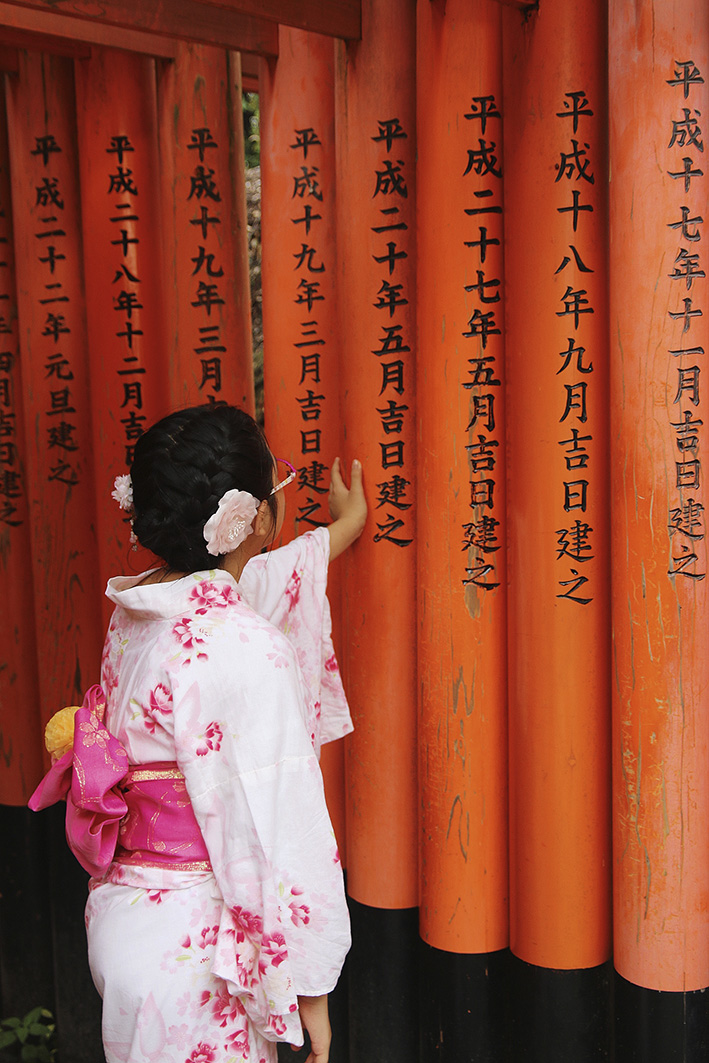 平成十七年十一月吉日建之
平成十八年九月吉日建之
平成二十七年五月吉日建之
平成二十年五月吉日建之
平成十九年三月吉日建之
平成十九年三月
平成二十八年十二月吉
平成二十二年元旦建之
月吉日建之